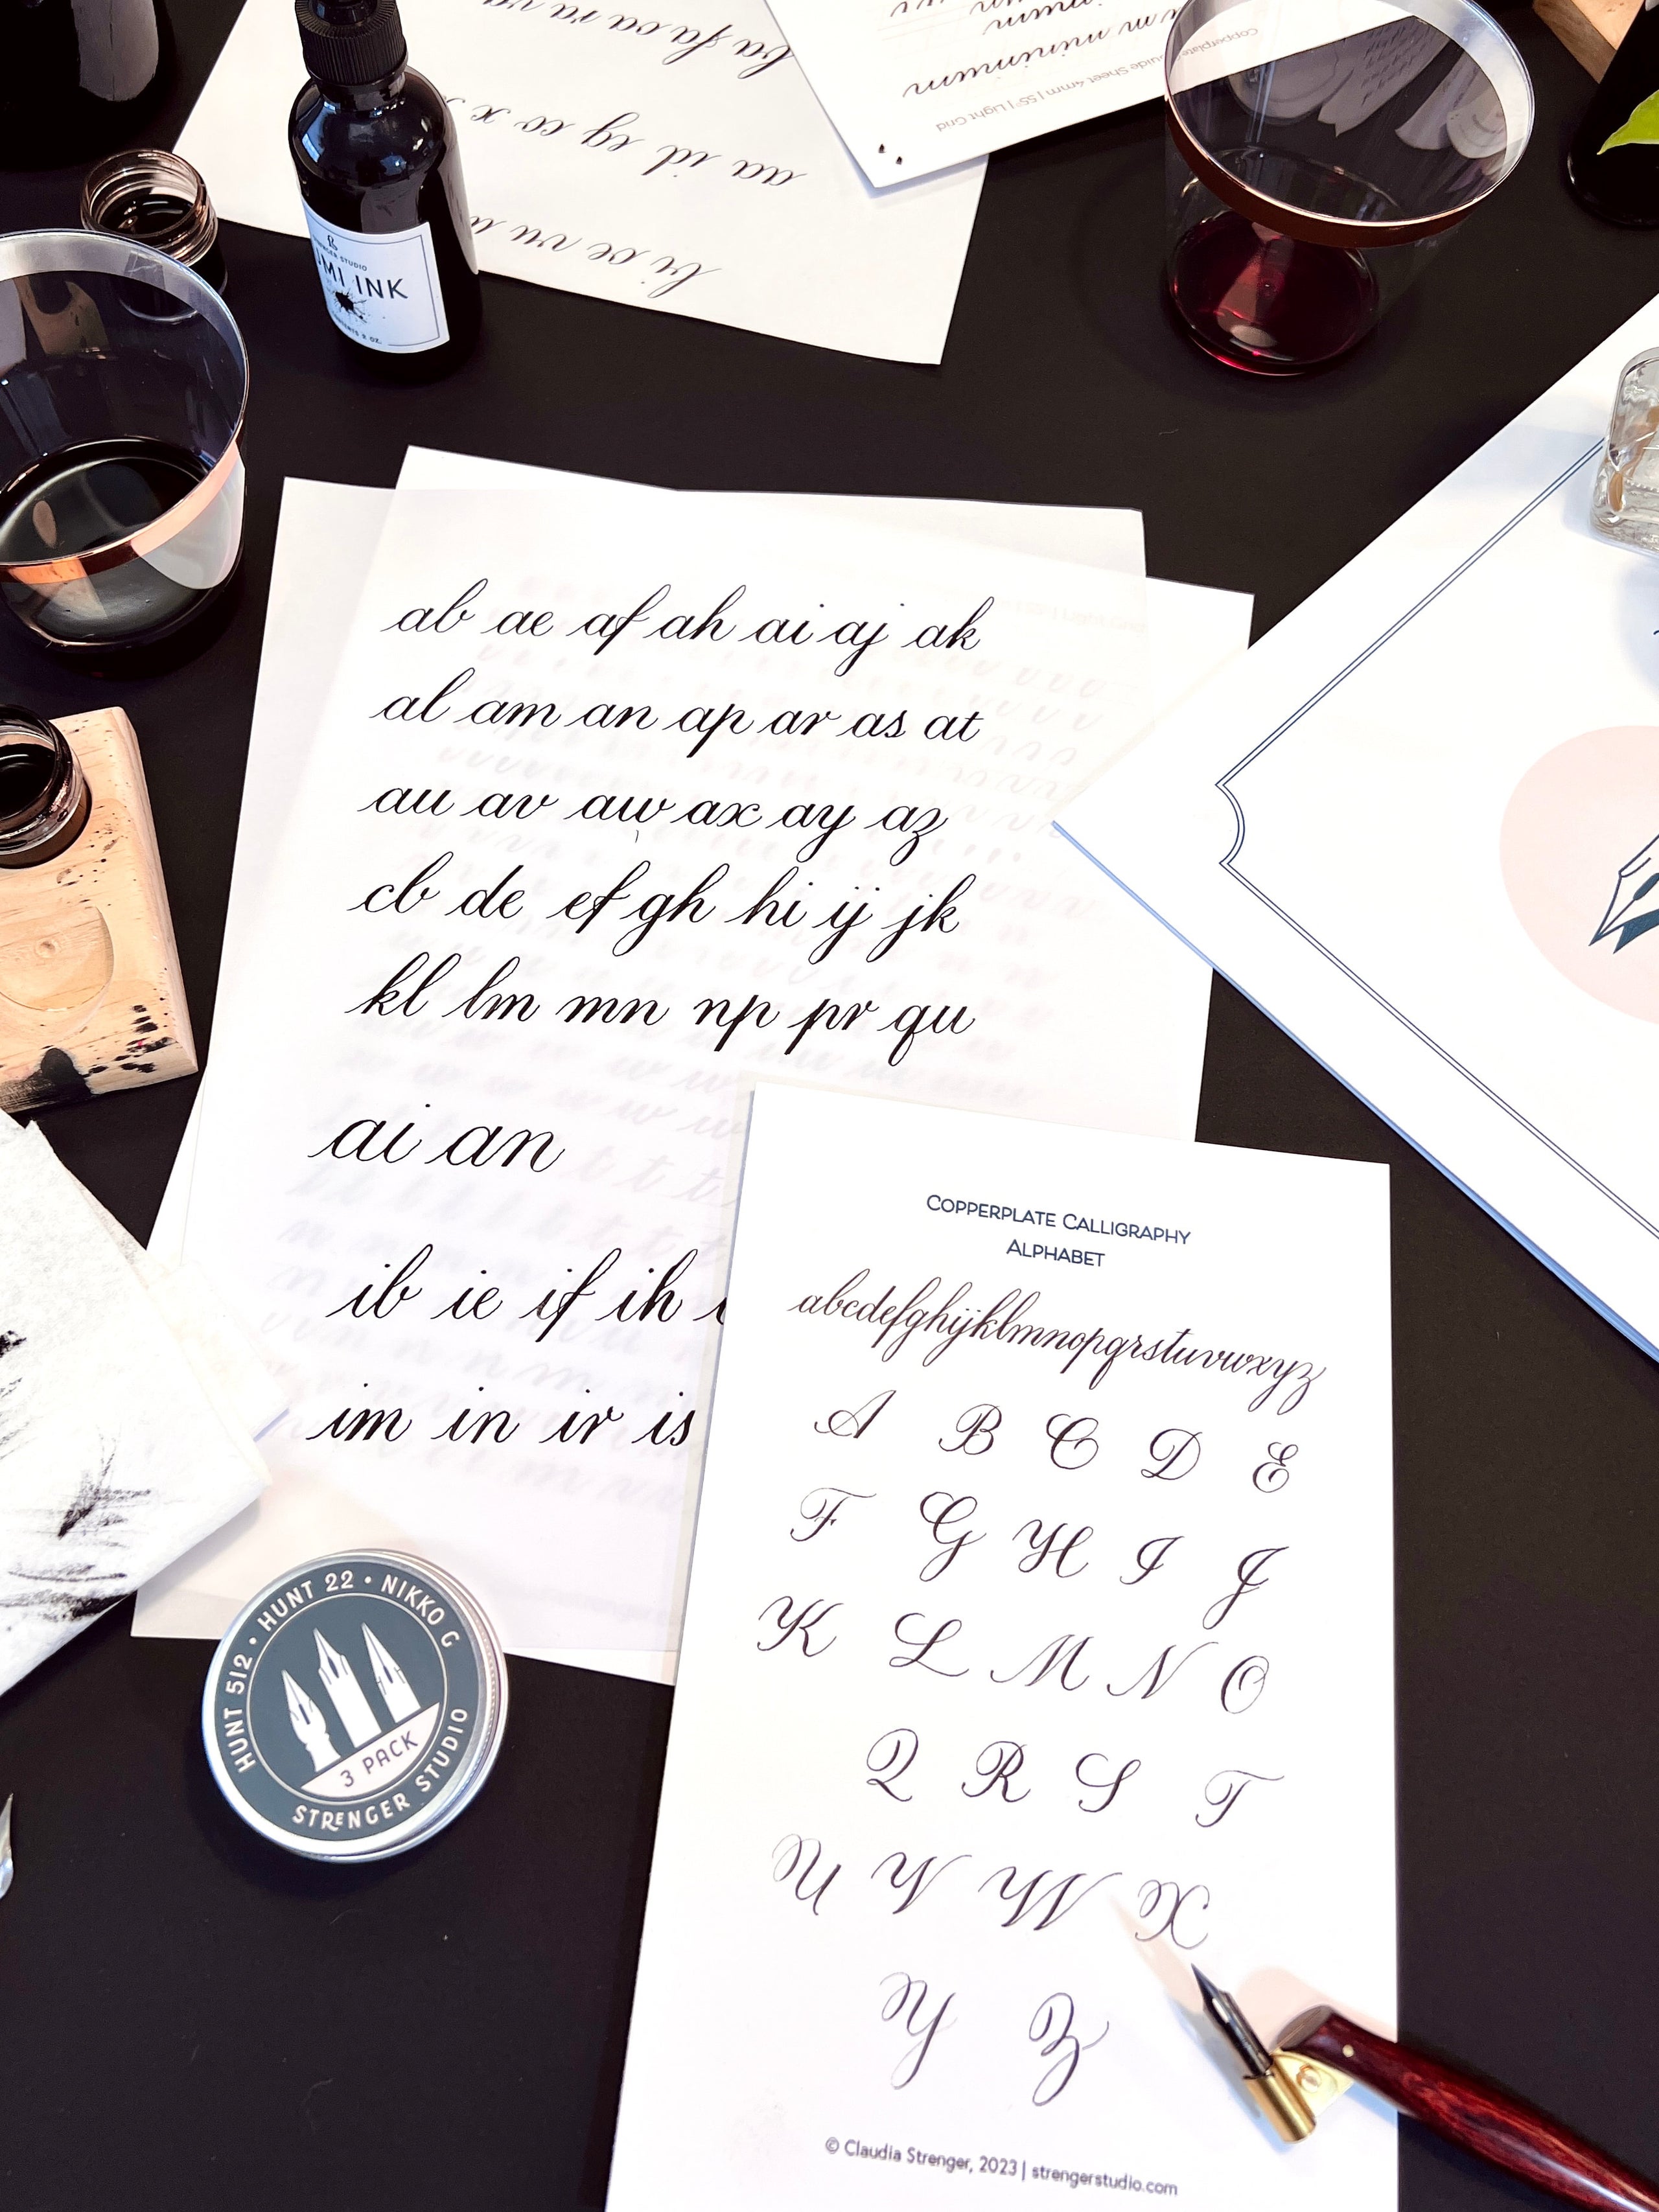 ba fa oa ra va
aa id eg eo x
bi oe vu u
minimum
m minimum
Guide Sheet 4mm | 55° | Light Grid
STRENGER STUDIO
INK
ab ae af ah ai aj ak
al am an ap ar as at
au av aw ax ay az
cb de ef gh hi ij jk
kl lm mn np pr qu
ai an
ib ie if ih
im in ir is
COPPERPLATE CALLIGRAPHY
ALPHABET
abcdefghijklmnopqrstuvwxyz
A B C D E
F G H I J
K L M N O
Q R S T
U V W X
Y Z
© Claudia Strenger, 2023 | strengerstudio.com
HUNT 512 • HUNT 22 • NIKKO G
3 PACK
STRENGER STUDIO